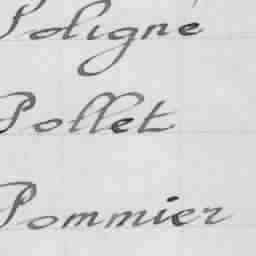 Poligné
Pollet
Pommier